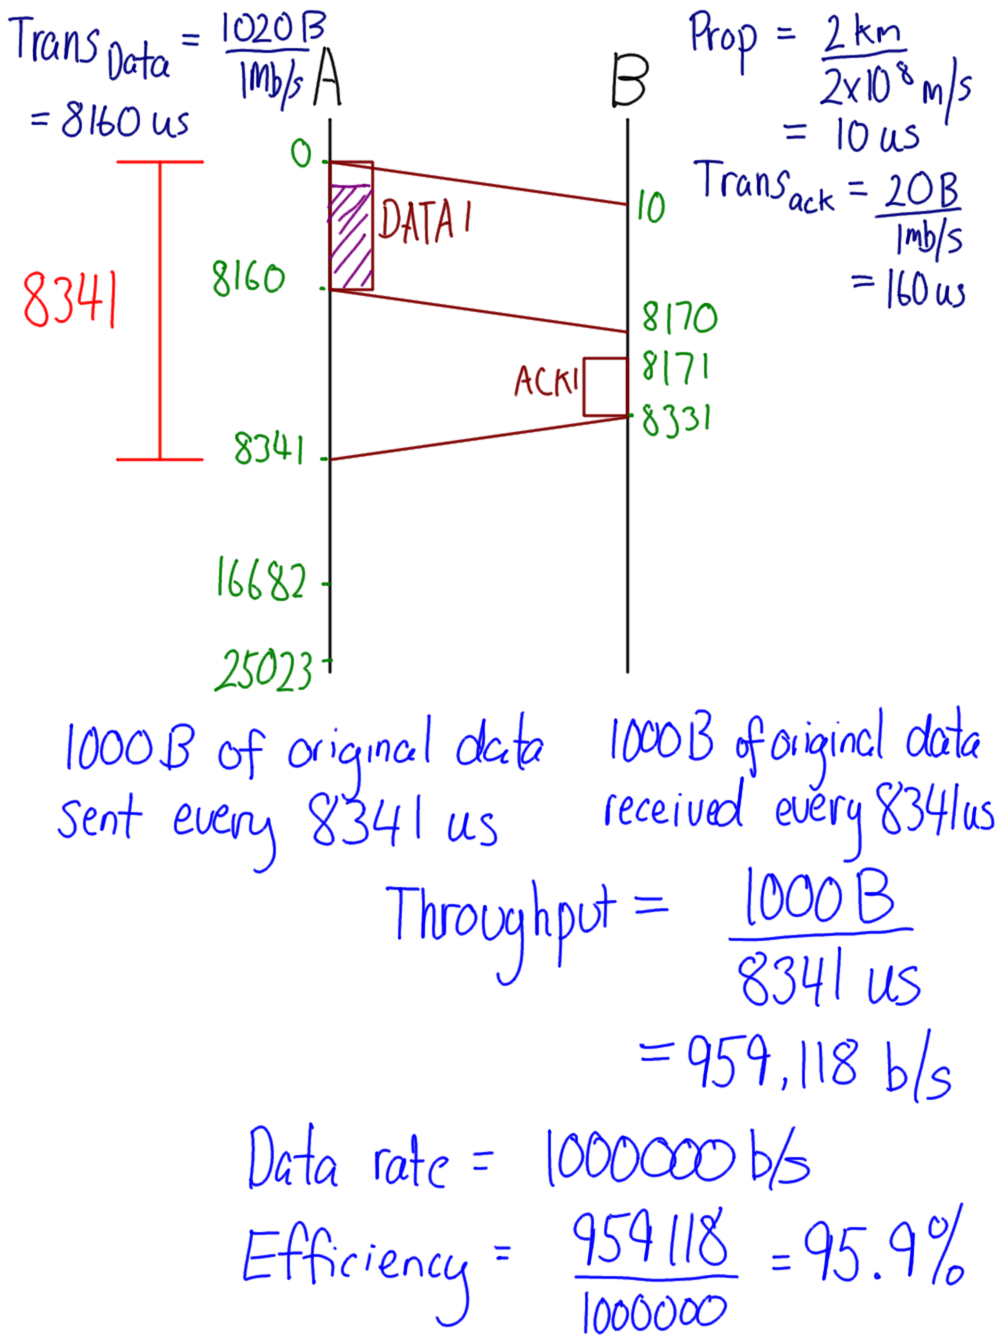 Trans Data = 1020B / 1Mb/s
= 8160 us
A
B
Prop = 2km / 2x10⁸ m/s
= 10 us
Trans ack = 20B / 1mb/s
= 160 us
0
10
DATA1
8341
8160
8170
8171
ACK1
8331
8341
16682
25023
1000B of original data
sent every 8341 us
1000B of original data
received every 8341us
Throughput = 1000B / 8341 us
= 959,118 b/s
Data rate = 1000000 b/s
Efficiency = 959118 / 1000000 = 95.9%